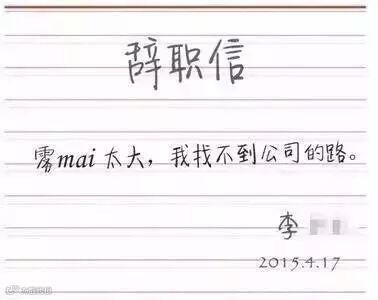 辞职信
雾mai太大，我找不到公司的路。
李
2015.4.17